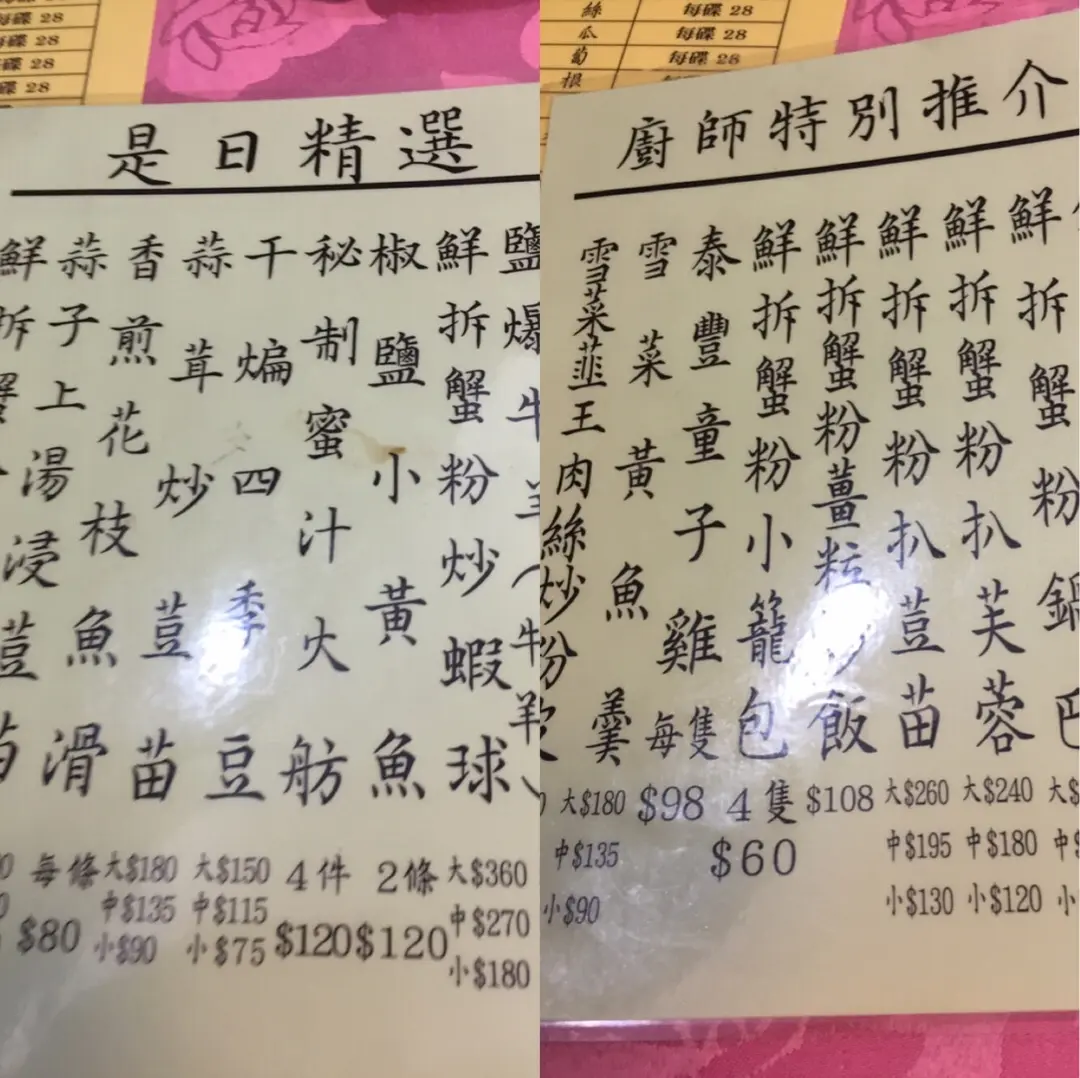 每碟 28
每碟 28
每碟 28
每碟 28
是日精選
鮮拆蟹粉炒蝦球
大$360
中$270
小$180
椒鹽小黃魚
2條
$120
秘制蜜汁火舫
4件
$120
干煸四季豆
大$150
中$115
小$75
蒜茸炒荳苗
大$180
中$135
小$90
香煎花枝魚滑
每條
$80
蒜子上湯浸荳苗
鮮拆蟹
絲 每碟 28
瓜 每碟 28
筍 每碟 28
根
廚師特別推介
鮮拆蟹粉鍋巴
鮮拆蟹粉扒芙蓉
大$240
中$180
小$120
鮮拆蟹粉扒荳苗
大$260
中$195
小$130
鮮拆蟹粉薑粒炒飯
$108
鮮拆蟹粉小籠包
4隻
$60
泰豐童子雞
每隻
$98
雪菜黃魚羹
大$180
中$135
小$90
雪菜韮王肉絲炒粉